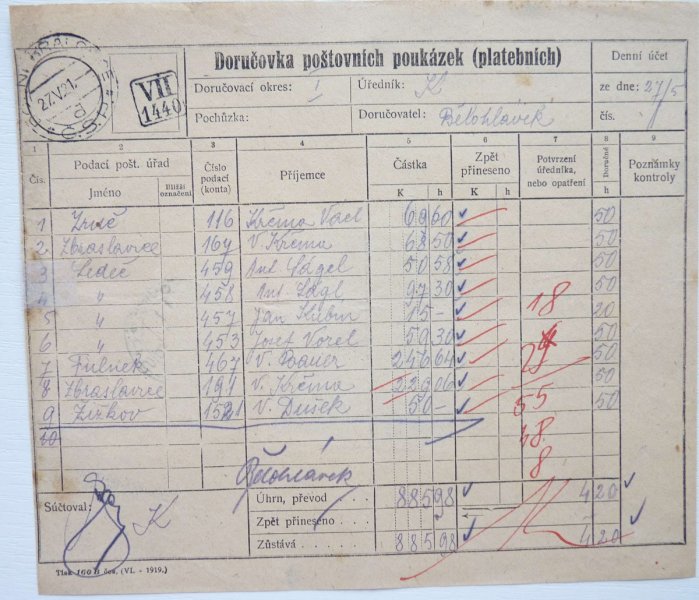 27.V.21.
Č.S.P.
VII
1440
Doručovka poštovních poukázek (platebních)
Denní účet
Doručovací okres: I Úředník: K
ze dne: 27/5
Pochůzka: Doručovatel: Bělohlávek
čís.
1 2 3 4 5 6 7 8 9
Čís. Podací pošt. úřad Číslo podací (konta) Příjemce Částka Zpět přineseno Potvrzení úředníka, nebo opatření Doručné Poznámky kontroly
Jméno Bližší označení K h K h h
1 Zruč 116 Křéma Václ 69 60 50
2 Zbraslavice 164 V. Křéma 68 50 50
3 Ledeč 459 Ant. Ságel 50 58 50
4 " 458 Ant. Ságl 97 30 50
5 " 457 Jan 15 - 18 20
6 " 453 Josef Vorel 59 30 50
7 Fulnek 467 V. 246 64 50
8 Zbraslavice 191 V. Křéma 229 06 50
9 Žižkov V. Dušek 50 - 55 50
10 18
8
Bělohlávek
Súčtoval: K
Úhrn, převod . . . 885 98 4 20
Zpět přineseno . . . .
Zůstává . . . 885 98 4 20
Tisk 160 B čes. (VI. - 1919.)